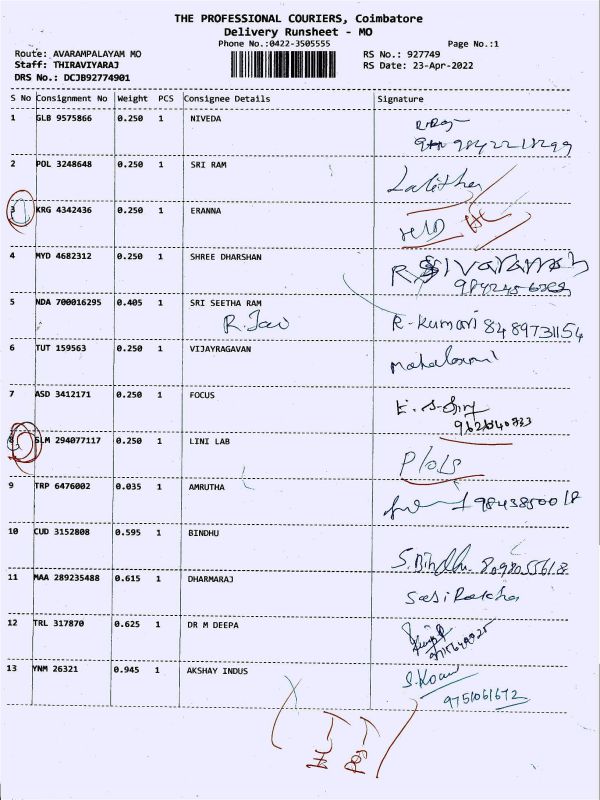 THE PROFESSIONAL COURIERS, Coimbatore
Delivery Runsheet - MO
Phone No.:0422-3505555
Page No.:1
Route: AVARAMPALAYAM MO
RS No.: 927749
Staff: THIRAVIYARAJ
RS Date: 23-Apr-2022
DRS No.: DCJB92774901
S No Consignment No Weight PCS Consignee Details Signature
1 GLB 9575866 0.250 1 NIVEDA
2 POL 3248648 0.250 1 SRI RAM Lalitha
3 KRG 4342436 0.250 1 ERANNA
4 MYD 4682312 0.250 1 SHREE DHARSHAN
5 NDA 700016295 0.405 1 SRI SEETHA RAM
R-Kumari 8489731154
6 TUT 159563 0.250 1 VIJAYRAGAVAN
7 ASD 3412171 0.250 1 FOCUS
8 SLM 294077117 0.250 1 LINI LAB
9 TRP 6476002 0.035 1 AMRUTHA
10 CUD 3152808 0.595 1 BINDHU
S.Bindhu
11 MAA 289235488 0.615 1 DHARMARAJ
12 TRL 317870 0.625 1 DR M DEEPA
13 YNM 26321 0.945 1 AKSHAY INDUS
9751061672